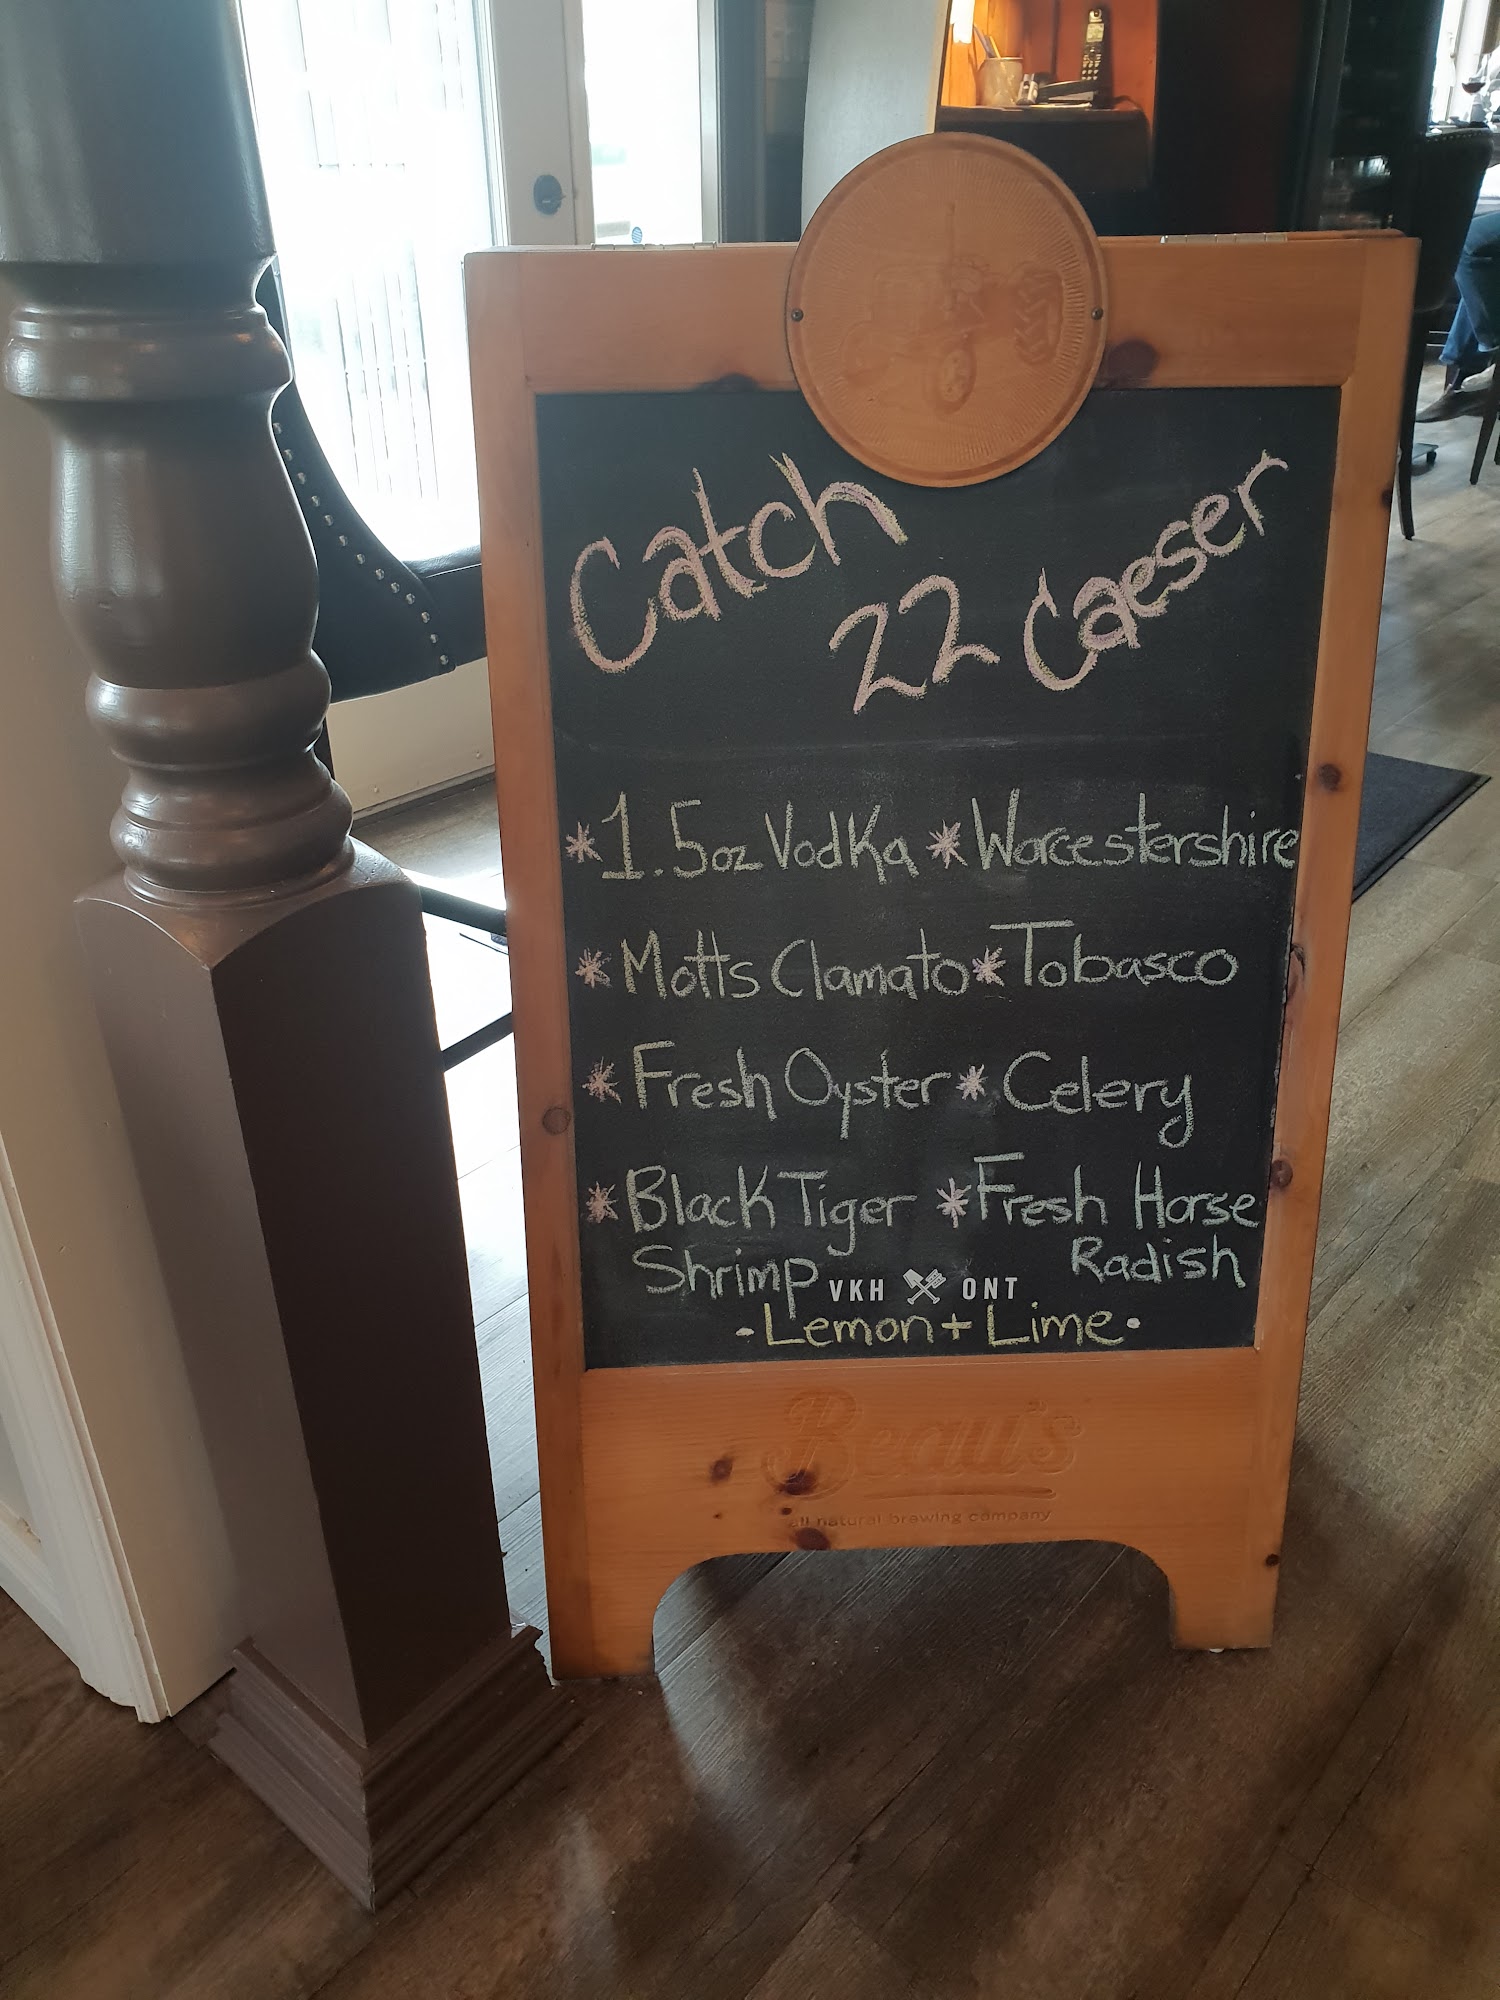 Catch
22 Caeser
*1.5oz Vodka *Worcestershire
*Motts Clamato *Tobasco
*Fresh Oyster *Celery
*Black Tiger *Fresh Horse
Shrimp Radish
VKH ONT
·Lemon + Lime·
Beau's
all natural brewing company